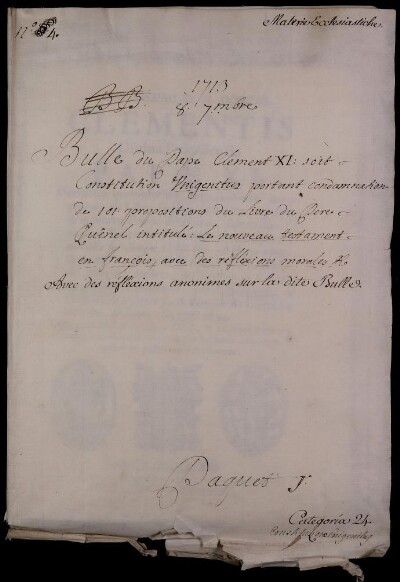 Materie Ecclesiastiche.
n.º 4.
1713
BB. 8. 7mbre
Bulle du Pape Clement XI: soit
Constitution Unigenitus portant condamnation
de 101 propositions du Livre du Pere
Quênel intitulé: Le nouveau testament
en françois, avec des réflexions morales &c
Avec des réfléxions anonimes sur la dite Bulle.
Paquet j.
Categoria 24.